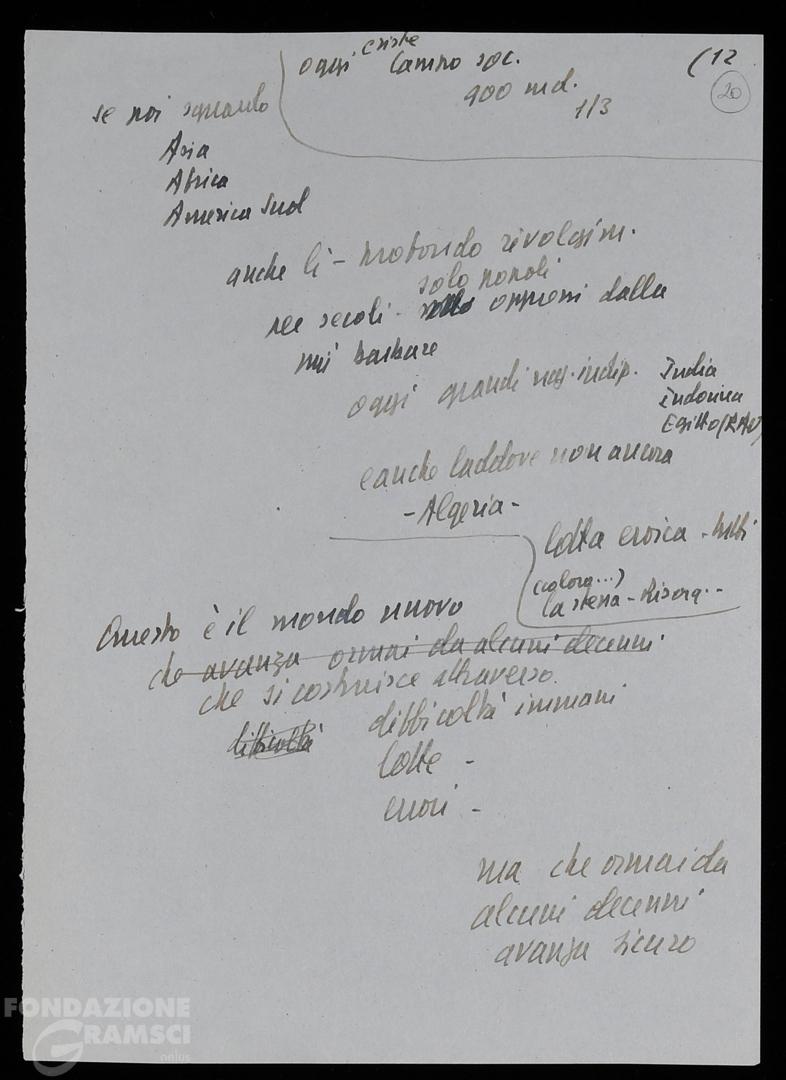 oggi esiste Campo soc.
900 md.
1/3
(12
20
se poi sguardo
Asia
Africa
America Sud
anche lì - profondo rivolgim.
solo popoli
per secoli - solo oppressi dalla
più barbare
oggi grandi naz. indip.
India
Indonesia
Egitto (RAU)
e anche laddove non ancora
- Algeria -
lotta eroica -
(coloro...)
la stessa - Risorg. -
Questo è il mondo nuovo
che avanza ormai da alcuni decenni
che si costruisce attraverso
difficoltà
difficoltà immani
lotte -
errori -
ma che ormai da
alcuni decenni
avanza sicuro
FONDAZIONE
GRAMSCI
onlus